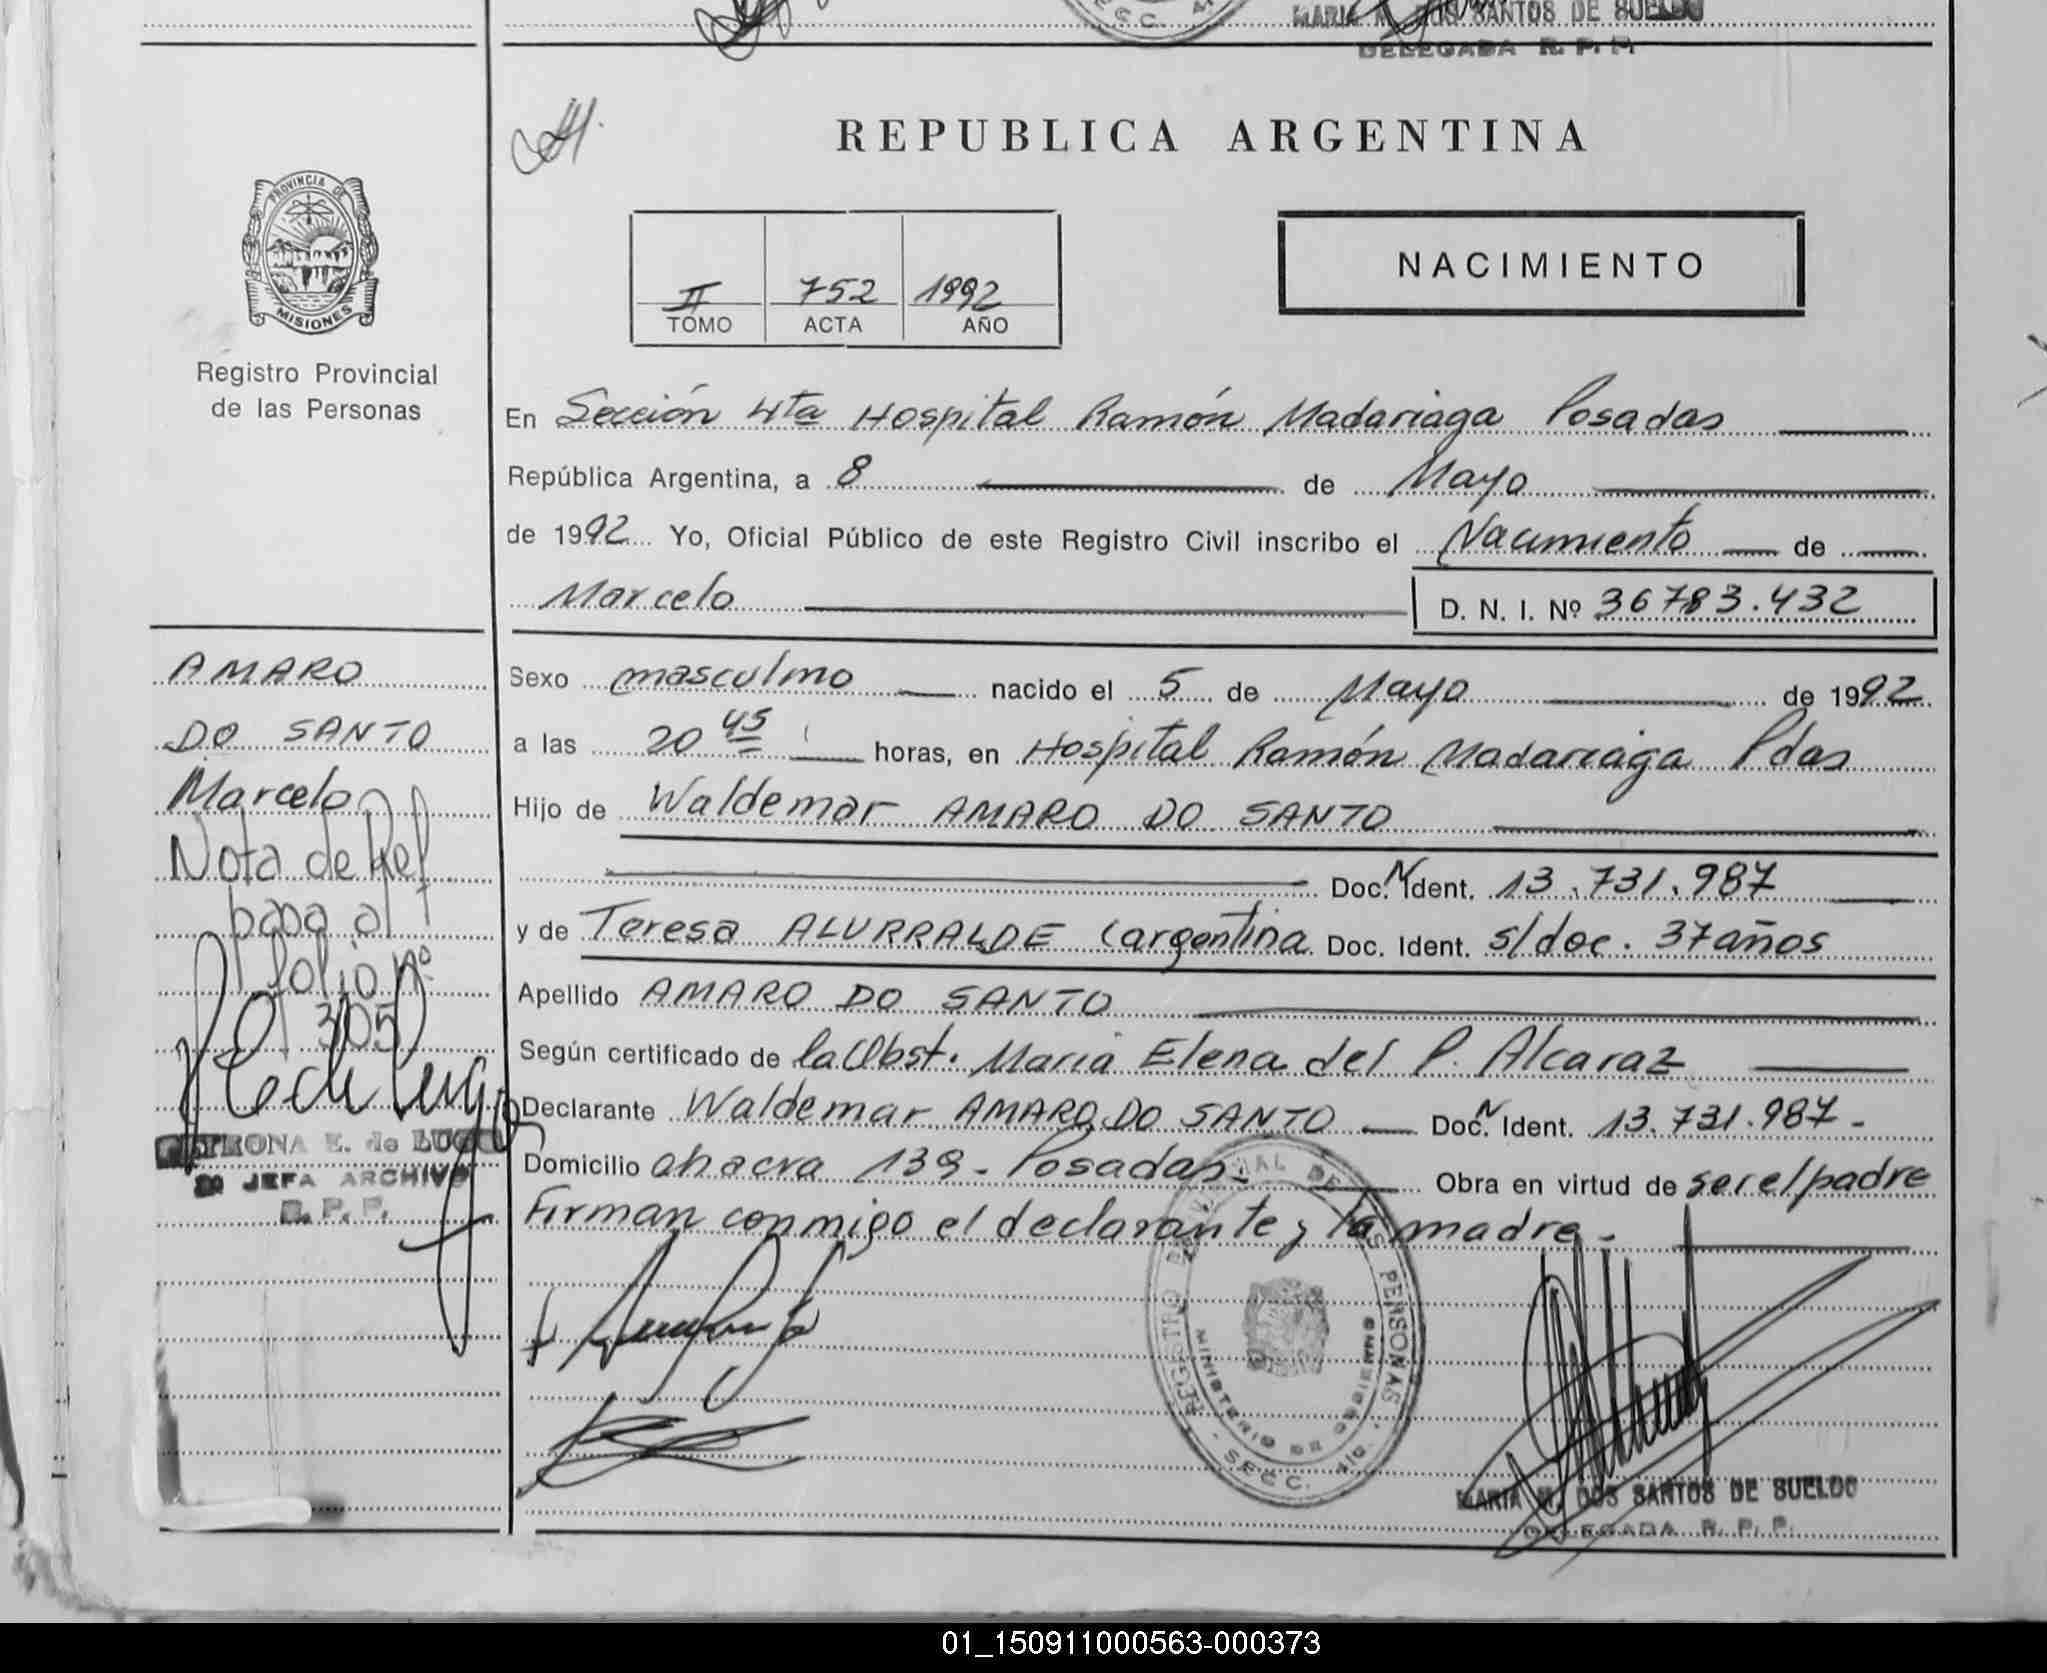 MARIA M. DOS SANTOS DE SUELDO
DELEGADA R. P. P.
REPUBLICA ARGENTINA
PROVINCIA DE
MISIONES
Registro Provincial
de las Personas
II 752 1992
TOMO ACTA AÑO
NACIMIENTO
En Sección 4ta Hospital Ramón Madariaga Posadas
República Argentina, a 8 de Mayo
de 1992 Yo, Oficial Público de este Registro Civil inscribo el Nacimiento de
Marcelo D. N. I. Nº 36783.432
AMARO
DO SANTO
Marcelo
Nota de Ref
pasa al
folio nº
305
PETRONA E. de LUGO
2º JEFA ARCHIVO
R. P. P.
Sexo masculino nacido el 5 de Mayo de 1992
a las 20 45 horas, en Hospital Ramón Madariaga Pdas
Hijo de Waldemar AMARO DO SANTO
Doc. N Ident. 13.731.987
y de Teresa ALURRALDE (argentina Doc. Ident. s/doc. 37 años
Apellido AMARO DO SANTO
Según certificado de la Obst. Maria Elena del P. Alcaraz
Declarante Waldemar AMARO DO SANTO Doc. N Ident. 13.731.987-
Domicilio chacra 139 - Posadas. Obra en virtud de ser el padre
Firman conmigo el declarante y la madre.-
REGISTRO PROVINCIAL DE LAS PERSONAS
MINISTERIO DE GOBIERNO
SECC.
MARIA M. DOS SANTOS DE SUELDO
DELEGADA R. P. P.
01_150911000563-000373